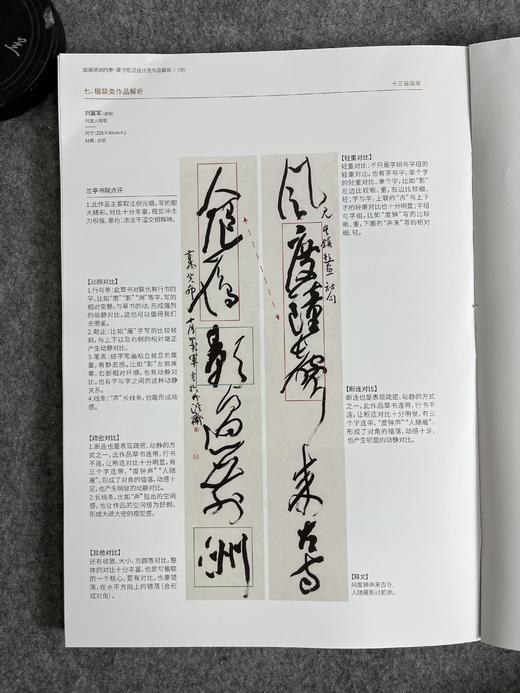 国展培训内参·草书形式设计及作品解析 | 190
十三届国展
七、楹联类作品解析
刘冀军
风度人随联
尺寸:225×40cm×2
兰亭书院点评
1.此作品主要取法倪元璐,写的胆
大精彩,对比十分丰富,视觉冲击
力很强。墨色:浓淡干湿交相辉映。
【动静对比】
1.行与草:此草书对联也有行书的
字,比如“度”“影”“洲”等字,写的
相对安静,与草书的动,形成强烈
的动静对比。这也可以值得我们
去借鉴。
2.欹正:比如“雁”字写的比较倾
斜,与上下以及右侧的相对端正
产生动静对比。
3.笔画:结字笔画粘合就显的厚
重,有静态感。比如“影”左部厚
重,右部相对纤细,也有动静对
比。也有字与字之间的这种动静
关系。
4.线条:“声”长线条,也能形成动
感。
【疏密对比】
1.断连也是表现疏密、动静的方式
之一,此作品草书连带,行书不
连,让断连对比十分明显,有
三个字连带,“度钟声”“人随
雁”,形成了对角的错落,动感十
足,也产生明显的动静对比。
2.长线条,比如“声”拉出的空间
感,也让作品的空间极为舒朗,
形成大疏大密的视觉感。
【其他对比】
还有收放、大小、方圆等对比,整
体的对比十分丰富,也是写楹联
的一个核心,要有对比,也要错
落,在水平方向上的错落(会形
成对角)。
风度钟声来古寺
人随雁影过前洲
【轻重对比】
轻重对比,不只是字组与字组的
轻重对比,也有字与字,单个字
的轻重对比。单个字,比如“影”
左边比较粗、重,右边比较细、
轻;字与字,上联的“古”与上下
字的轻重对比也十分明显;字组
与字组,比如“度钟”写的比较
粗、重,下面的“声来”写的相对
细、轻。
【断连对比】
断连也是表现疏密、动静的方式
之一,此作品草书连带,行书不
连,让断连对比十分明显,有三
个字连带,“度钟声”“人随雁”,
形成了对角的错落,动感十足,
也产生明显的动静对比。
【释文】
风度钟声来古寺,
人随雁影过前洲。